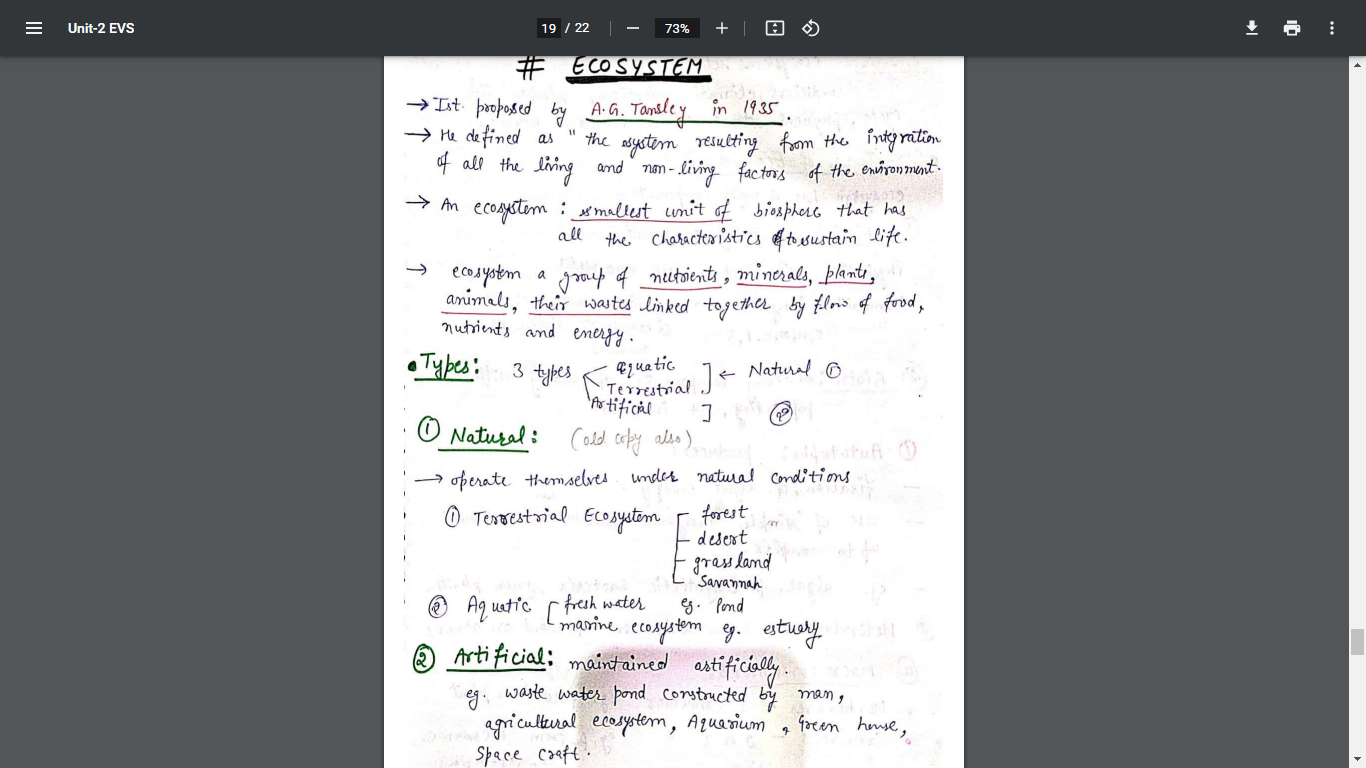 Unit-2 EVS
19 / 22
73%
# ECOSYSTEM
→ Ist. proposed by A.G. Tansley in 1935.
→ He defined as " the system resulting from the integration
of all the living and non-living factors of the environment.
→ An ecosystem : smallest unit of biosphere that has
all the characteristics to sustain life.
→ ecosystem a group of nutrients, minerals, plants,
animals, their wastes linked together by flow of food,
nutrients and energy.
• Types: 3 types
Aquatic
Terrestrial ] ← Natural ①
Artificial ] ②
① Natural: (old copy also)
→ operate themselves under natural conditions
① Terrestrial Ecosystem
forest
desert
grassland
Savannah
② Aquatic
fresh water eg. Pond
marine ecosystem eg. estuary
② Artificial: maintained artificially.
eg. waste water pond constructed by man,
agricultural ecosystem, Aquarium, Green house,
Space craft.